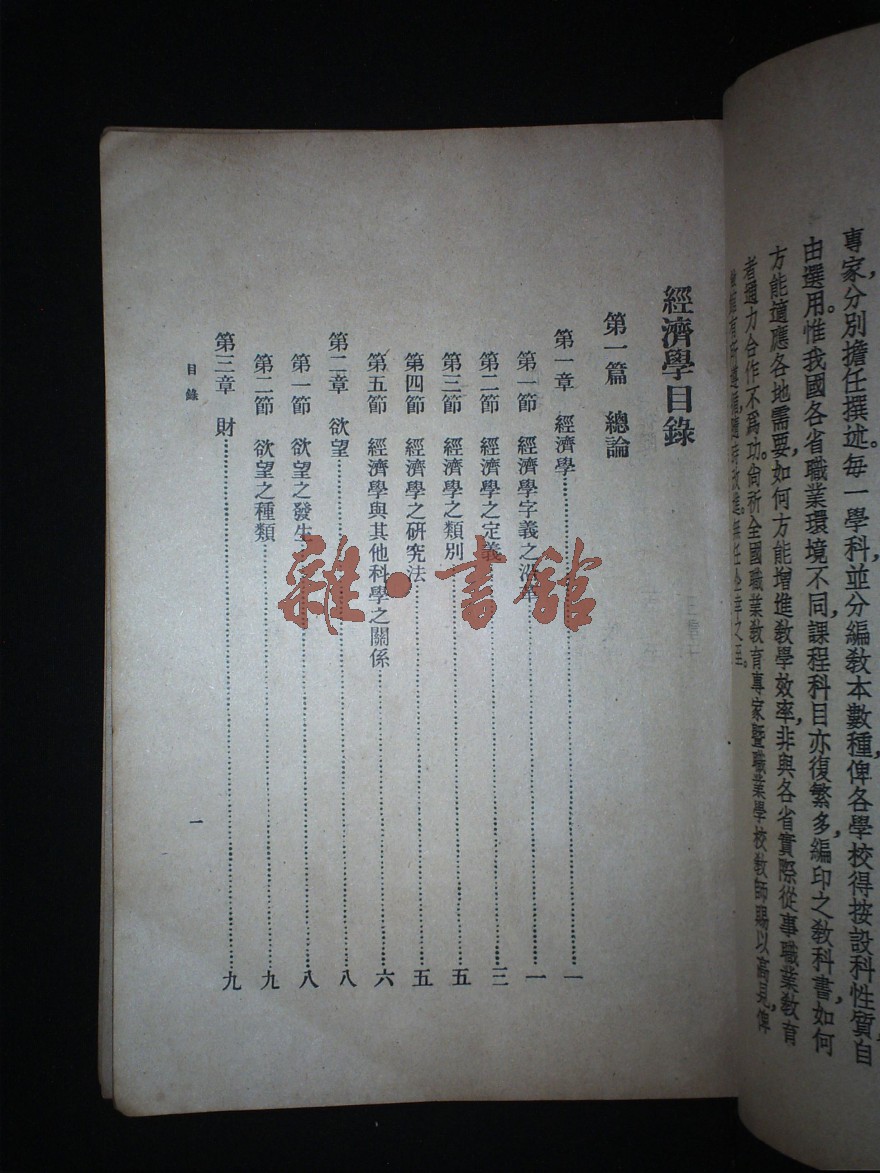 專家，分別擔任撰述。每一學科，並分編教本數種，俾各學校得按設科性質，自
由選用。惟我國各省職業環境不同，課程科目亦復繁多，編印之教科書，如何
方能適應各地需要，如何方能增進教學效率，非與各省實際從事職業教育
者通力合作不爲功。尙祈全國職業教育專家暨職業學校教師，賜以高見，俾
經濟學目錄
第一篇 總論
第一章 經濟學 一
第一節 經濟學字義之沿革 一
第二節 經濟學之定義 三
第三節 經濟學之類別 五
第四節 經濟學之研究法 五
第五節 經濟學與其他科學之關係 六
第二章 欲望 八
第一節 欲望之發生 八
第二節 欲望之種類 九
第三章 財 九
目錄
一
雜·書館